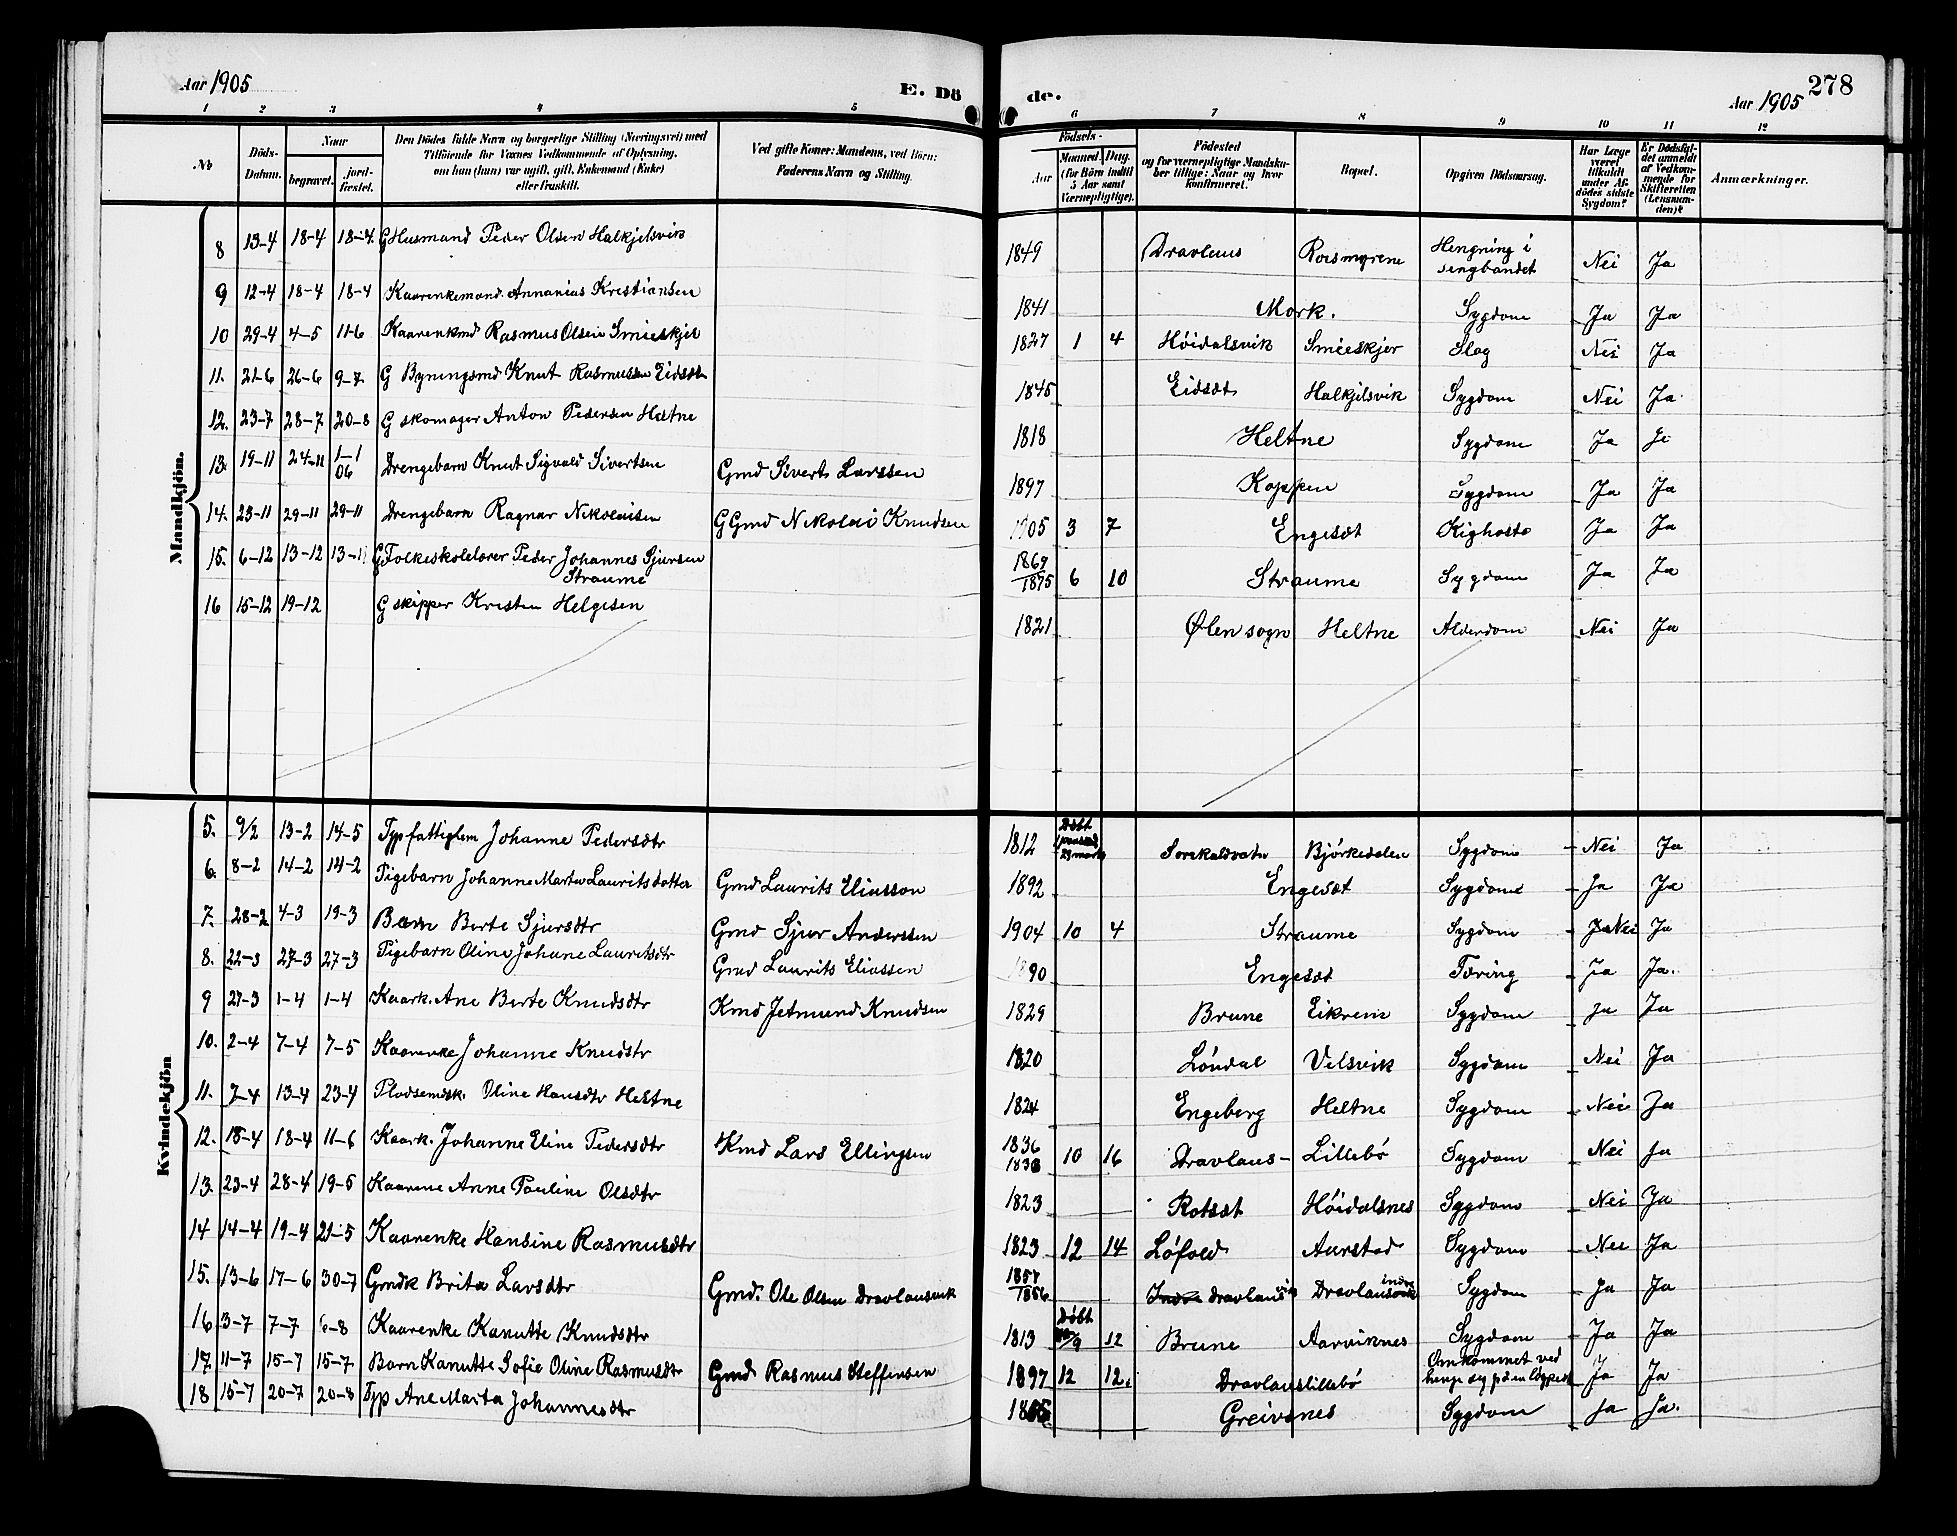 Aar 1905
E. Dö
de.
Aar 1905
278
1 2 3 4 5
6 7 8 9 10 11 12
No
Döds-Datum.
Naar
begravet.
jordfæstet.
Den Dödes fulde Navn og borgerlige Stilling (Næringsvei) med
Tilföiende for Voxnes Vedkommende af Oplysning,
om han (hun) var ugift, gift, Enkemand (Enke)
eller fraskilt.
Ved gifte Koner: Mandens, ved Börn:
Faderens Navn og Stilling.
Födsels-
Aar
Maaned. Dag.
(for Börn indtil
5 Aar samt
Værnepligtige).
Födested
og for værnepligtige Mandskaber tillige: Naar og hvor
konfirmeret.
Bopæl.
Opgiven Dödsaarsag.
Har Læge
været
tilkaldt
under Afdödes sidste
Sygdom?
Er Dödsfaldet anmeldt
af Vedkommende for
Skifteretten
(Lensmanden)?
Anmærkninger.
Mandkjön.
8 13-4 18-4 18-4 G Husmand Peder Olsen Halkjelsvik 1849 Dravlaus Roismyrene Hengning i sengbandet Nei Ja
9 12-4 18-4 18-4 Kaarenkemand Annanias Kristiansen 1841 Mork. Sygdom Ja Ja
10 29-4 4-5 11-6 Kaarenkmd Rasmus Olsen Smieskjer 1827 1 4 Høidalsvik Smieskjer Slag Nei Ja
11. 21-6 26-6 9-7 G Bygningsmd Knut Rasmussen Eidsæt 1845 Eidsæt Halkjelsvik Sygdom Nei Ja.
12. 23-7 28-7 20-8 G skomager Anton Pedersen Heltne 1818 Heltne Sygdom Ja Ja
13. 19-11 24-11 1-1 06 Drengebarn Knut Sigvald Sivertsen Gmd Sivert Larssen 1897 Koppen Sygdom Ja Ja
14. 23-11 29-11 29-11 Drengebarn Ragnar Nikolaisen G Gmd Nikolai Knudsen 1905 3 7 Engesæt Kighoste Ja Ja
15. 6-12 13-12 13-1 G Folkeskolelærer Peder Johannes Sjursen Straume 1869 1875 6 10 Straume Sygdom Ja Ja
16 15-12 19-12 G skipper Kristen Helgesen 1821 Ølen sogn Heltne Alderdom Nei Ja
Kvindekjön
5. 9/2 13-2 14-5 Typ fattiglem Johanne Pedersdtr 1812 Døbt 29 marts Bjørkedalen Sygdom Nei Ja
6. 8-2 14-2 14-2 Pigebarn Johanne Martea Lauritsdotter Gmd Laurits Eliasson 1892 Engesæt Sygdom Ja Ja
7. 28-2 4-3 19-3 Barn Berte Sjursdtr Gmd Sjur Anderssen 1904 10 4 Straume Sygdom Nei Ja
8. 22-3 27-3 27-3 Pigebarn Oline Johane Lauritsdtr Gmd Laurits Eliassen 1890 Engesæt Tæring Ja Ja.
9 27-3 1-4 1-4 Kaark. Ane Berte Knudsdtr Kmd Jetmund Knudsen 1829 Brune Eikrem Sygdom Ja Ja
10. 2-4 7-4 7-5 Kaarenke Johanne Knudsdtr 1820 Løndal Velsvik Sygdom Nei Ja
11. 7-4 13-4 23-4 Pladsemdsk. Oline Hansdtr Heltne 1824 Engeberg Heltne Sygdom Nei Ja
12. 15-4 18-4 11-6 Kaark. Johanne Eline Pedersdtr Kmd Lars Ellingsen 1836 1838 10 16 Dravlaus- Lillebø Sygdom Nei Ja
13. 23-4 28-4 19-5 Kaarene Anne Pauline Olsdtr 1823 Rotsæt Høidalsnes Sygdom Nei Ja
14 14-4 19-4 21-5 Kaarenke Hansine Rasmusdtr 1823 12 14 Løfold Aarstad Sygdom Nei Ja
15. 13-6 17-6 30-7 Gmdk Brita Larsdtr Gmd. Ole Olsen Dravlausvik 1857 1856 Indre Dravlausvik Dravlausvik indre Sygdom Ja Ja
16 3-7 7-7 6-8 Kaarenke Kanutte Knudsdtr 1813 Døbt 9 12 Brune Aarviknes Sygdom Ja Ja
17. 11-7 15-7 15-7 Barn Kanutte Sofie Oline Rasmusdtr Gmd Rasmus Steffensen 1897 12 12. Dravlauslillebø Omkommet ved henge sig på en Ja Ja
18 15-7 20-7 20-8 Typ Ane Marta Johannesdtr Greivsnes Sygdom Ja Ja.